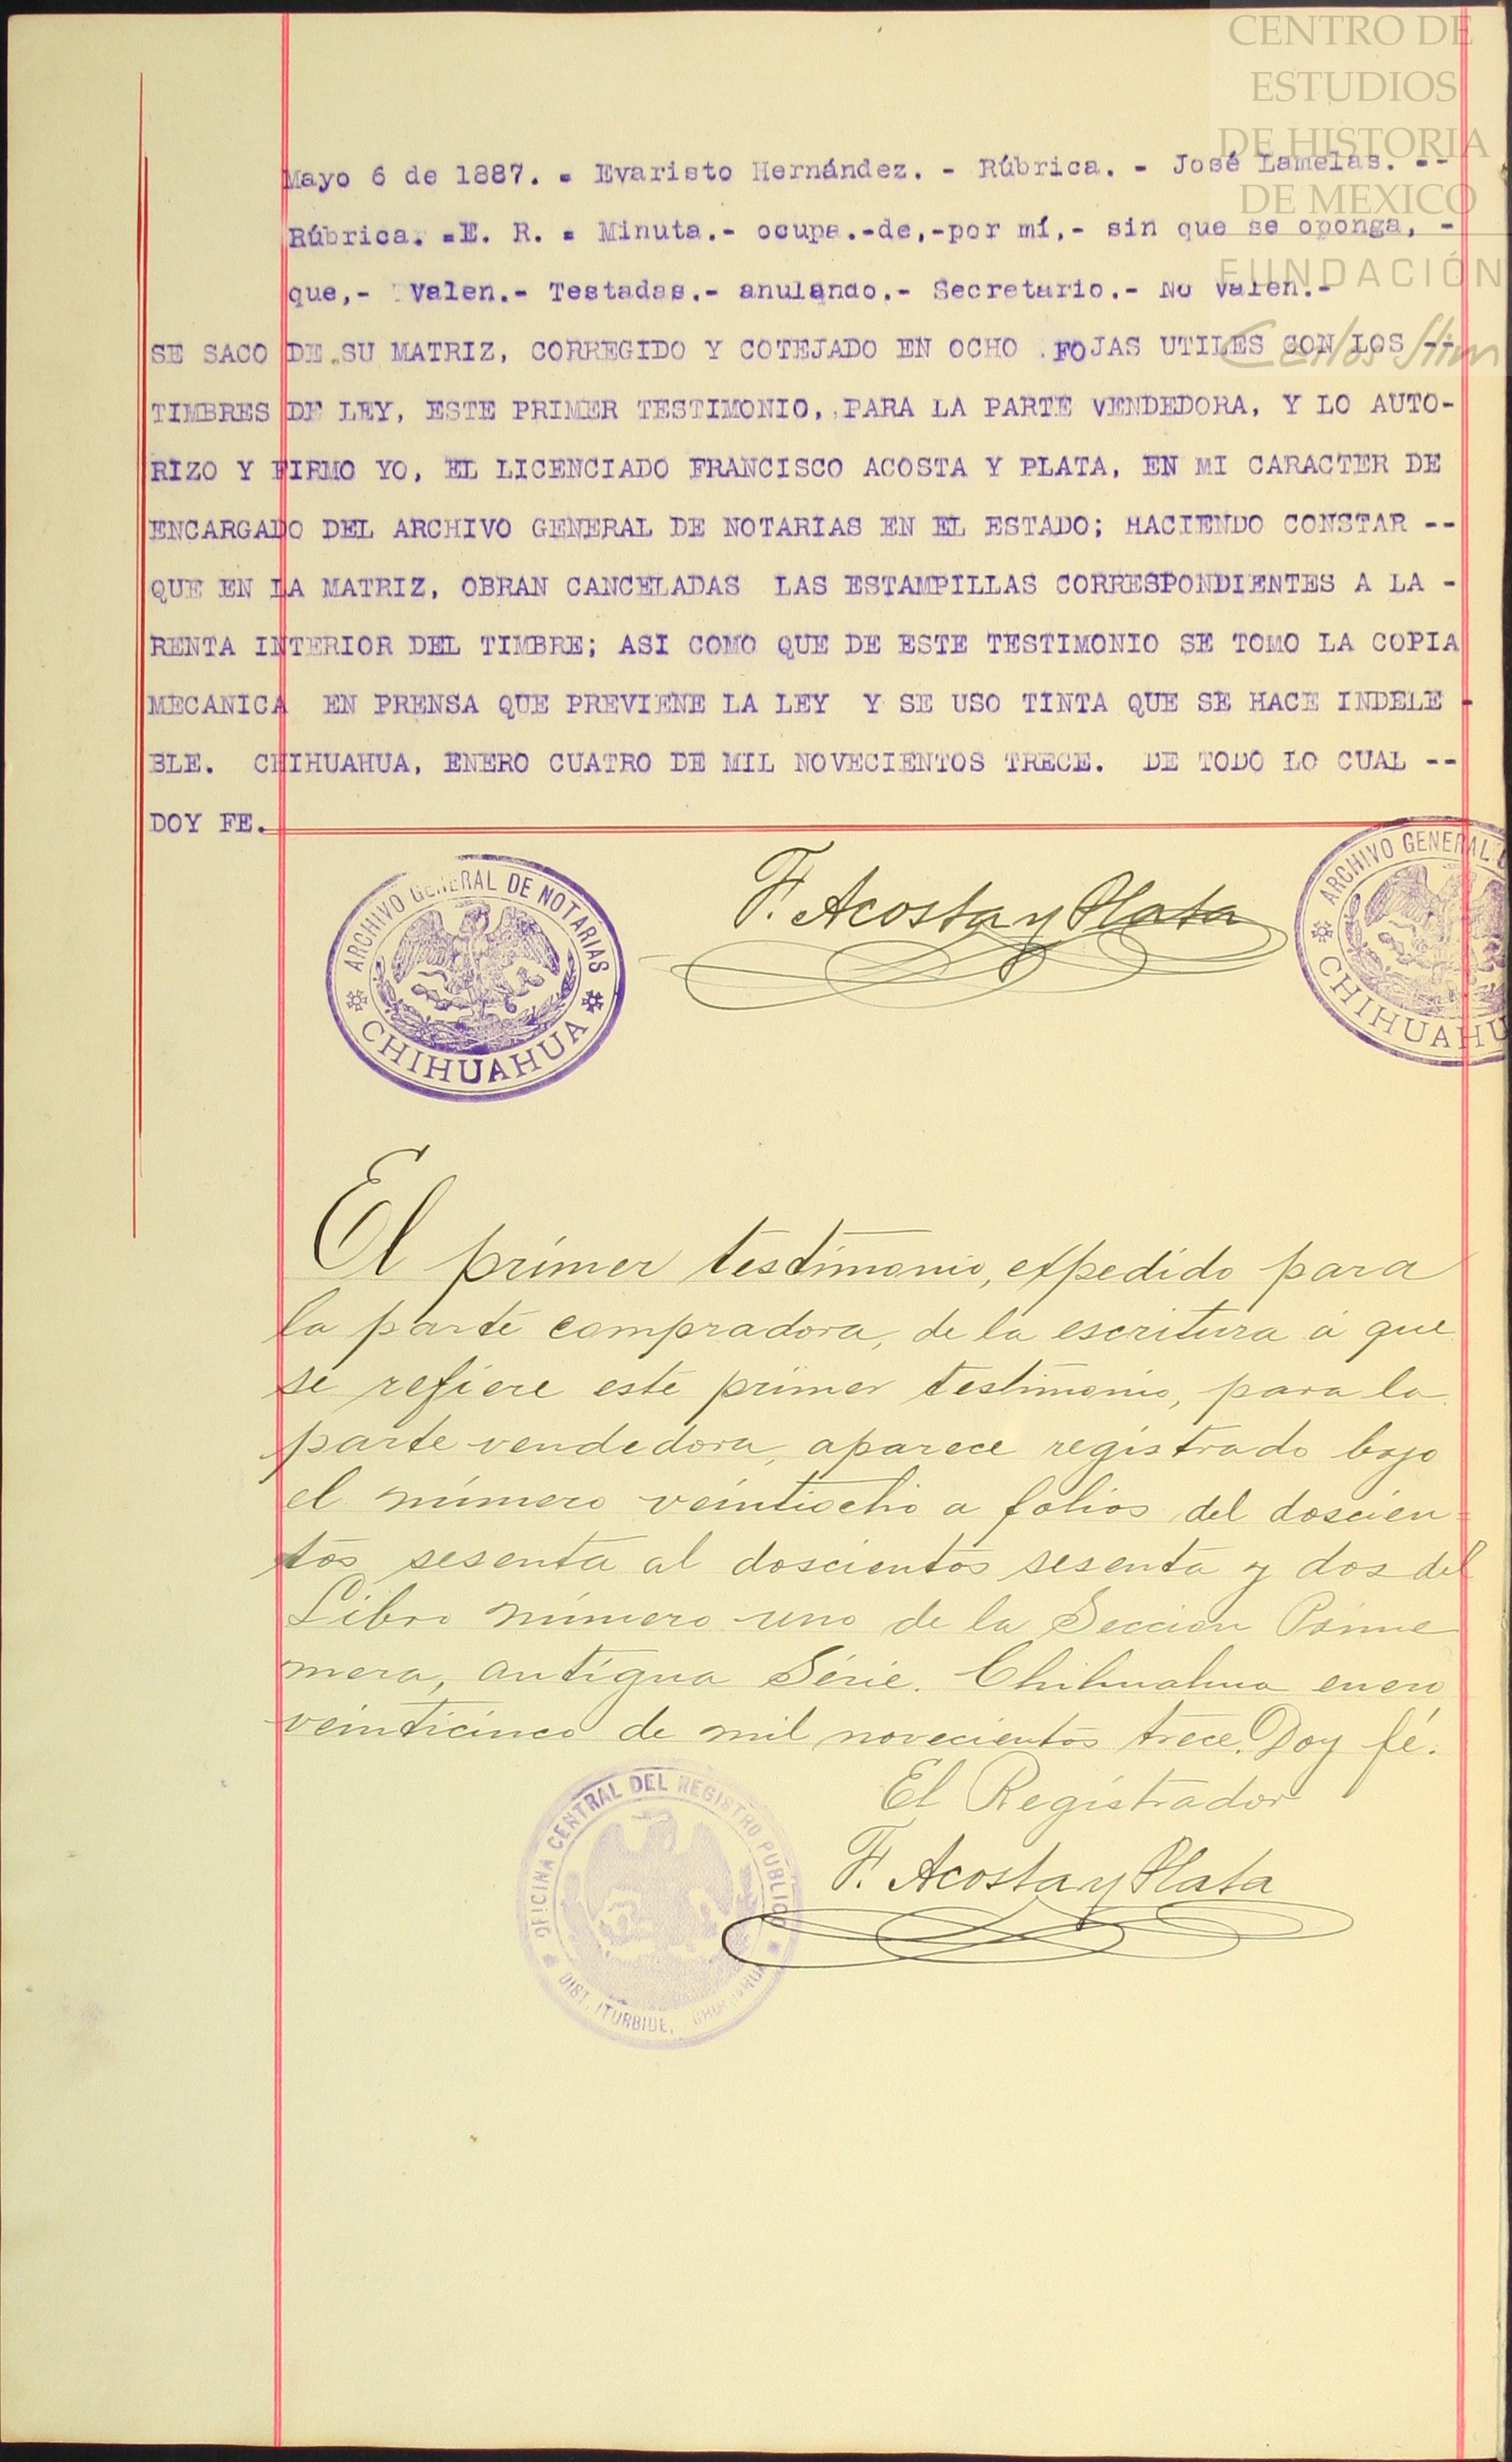 CENTRO DE
ESTUDIOS
DE HISTORIA
DE MEXICO
FUNDACIÓN
Carlos Slim
Mayo 6 de 1887. - Evaristo Hernández. - Rúbrica. - José Lamelas. --
Rúbrica. -E. R. - Minuta.- ocupa.-de,-por mí,- sin que se oponga, -
que,- Valen.- Testadas.- anulando.- Secretario.- No valen.-
SE SACO DE SU MATRIZ, CORREGIDO Y COTEJADO EN OCHO FOJAS UTILES CON LOS --
TIMBRES DE LEY, ESTE PRIMER TESTIMONIO, PARA LA PARTE VENDEDORA, Y LO AUTO-
RIZO Y FIRMO YO, EL LICENCIADO FRANCISCO ACOSTA Y PLATA, EN MI CARACTER DE
ENCARGADO DEL ARCHIVO GENERAL DE NOTARIAS EN EL ESTADO; HACIENDO CONSTAR --
QUE EN LA MATRIZ, OBRAN CANCELADAS LAS ESTAMPILLAS CORRESPONDIENTES A LA -
RENTA INTERIOR DEL TIMBRE; ASI COMO QUE DE ESTE TESTIMONIO SE TOMO LA COPIA
MECANICA EN PRENSA QUE PREVIENE LA LEY Y SE USO TINTA QUE SE HACE INDELE -
BLE. CHIHUAHUA, ENERO CUATRO DE MIL NOVECIENTOS TRECE. DE TODO LO CUAL --
DOY FE.
ARCHIVO GENERAL DE NOTARIAS
CHIHUAHUA
F. Acosta y Plata
ARCHIVO GENERAL
CHIHUAHU
El primer testimonio, expedido para
la parte compradora, de la escritura á que
se refiere este primer testimonio, para la
parte vendedora, aparece registrado bajo
el número veintiocho a folios del doscien-
tos sesenta al doscientos sesenta y dos del
Libro número uno de la Sección Prime
mera, antigua Série. Chihuahua enero
veinticinco de mil novecientos trece. Doy fé.
El Registrador
F. Acosta y Plata
OFICINA CENTRAL DEL REGISTRO PUBLICO
DIST. ITURBIDE, CHIHUAHUA